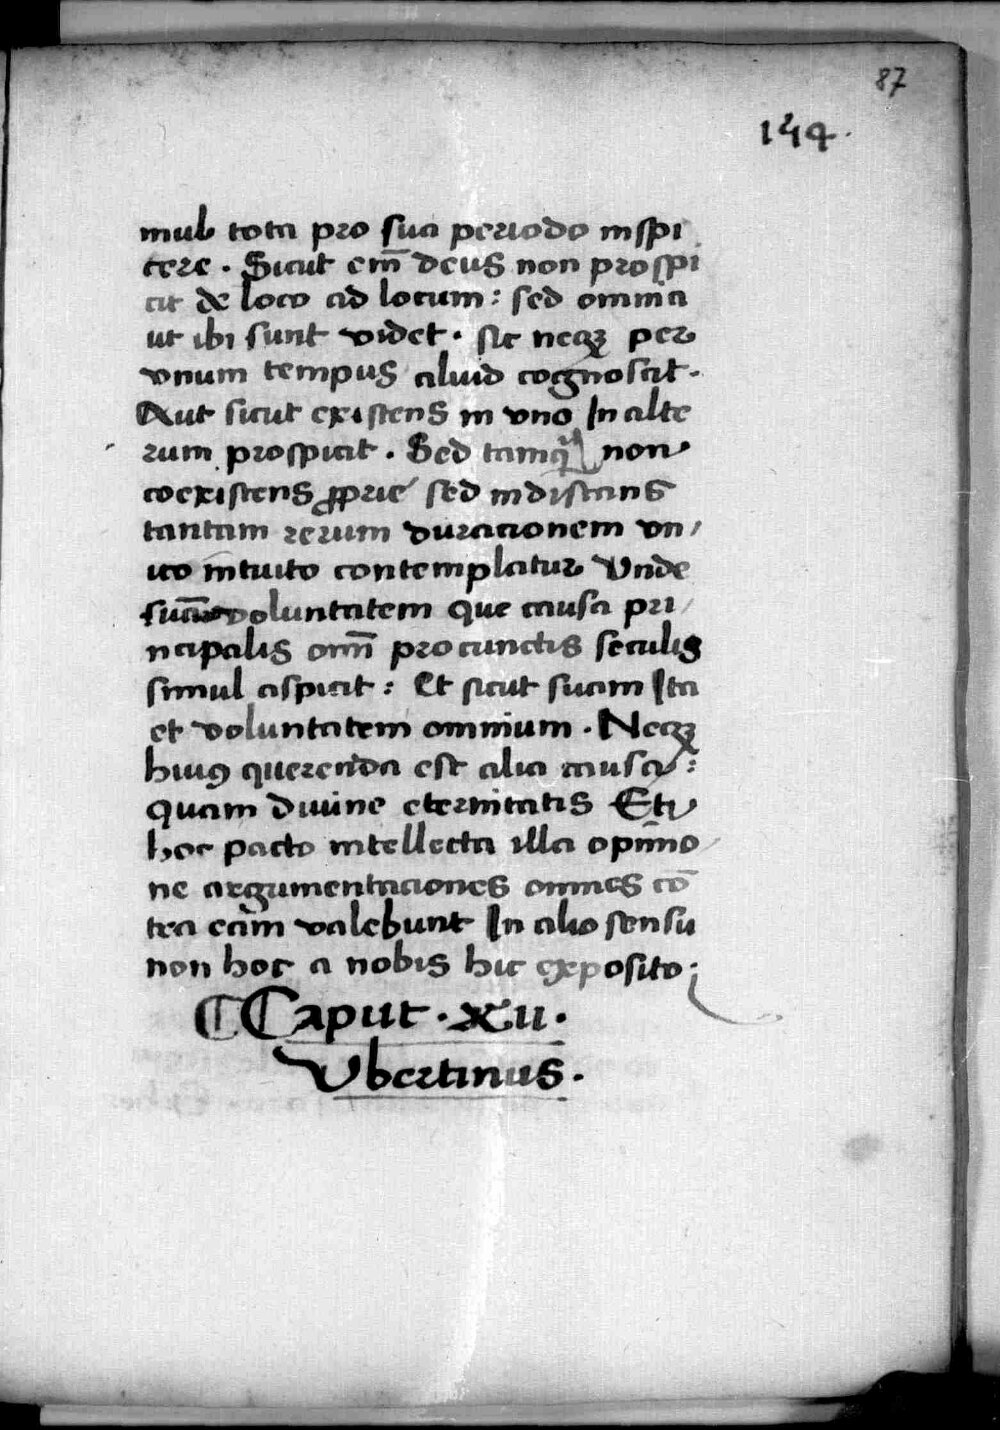 87
144.
mul tota pro sua periodo inspi
cere. Sicut em̄ deus non prospi
cit de loco ad locum: sed omnia
ut ibi sunt videt. sic neqꝫ per
vnum tempus aliud cognoscit.
Aut sicut existens in vno In alte
rum prospicit. Sed tamq̃ non
coexistens ꝓprie sed indistans
tantam rerum duracionem vn/
ico intuito contemplatur Vnde
voluntatem que causa pri/
ncipalis om̄ pro cunctis seculis
simul aspicit: Et sicut suam Ita
et voluntatem omnium. Neqꝫ
huiꝰ querenda est alia causa:
quam diuine eternitatis Et
hoc pacto intellecta illa opinio
ne argumentaciones omnes cō
tra eam valebunt In alio sensu
non hoc a nobis hic exposito.
Caput. xii.
Vbertinus.